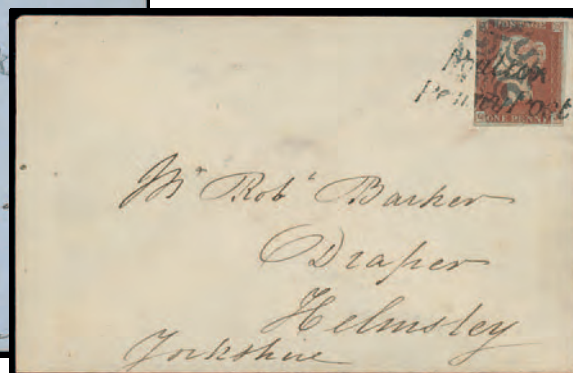 Penny Post
ONE PENNY
Mr. Robt. Barker
Draper
Helmsley
Yorkshire